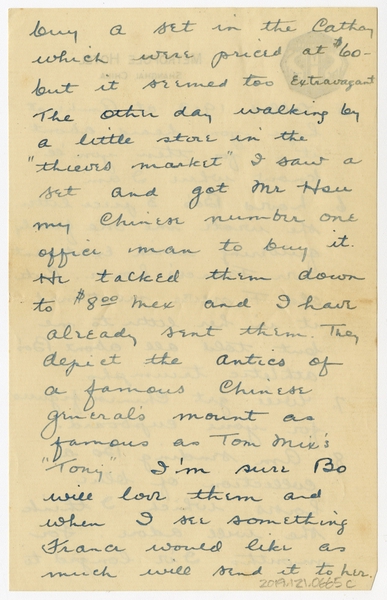 buy a set in the Cathay
which were priced at $60-
but it seemed too Extravagant
The other day walking by
a little store in the
"thieves market" I saw a
set and got Mr Hsu
my Chinese number one
office man to buy it.
He talked them down
to $8.00 Mex and I have
already sent them. They
depict the antics of
a famous Chinese
general's mount as
famous as Tom Mix's
"Tony". I'm sure Bo
will love them and
when I see something
Franci would like as
much will send it to her.
2019.121.0665C